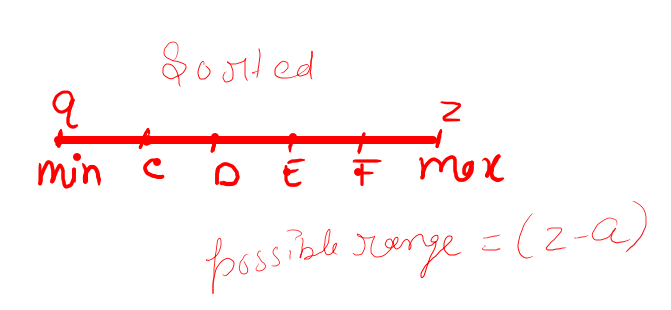 Sorted
a z
min C D E F max
possible range = (z-a)